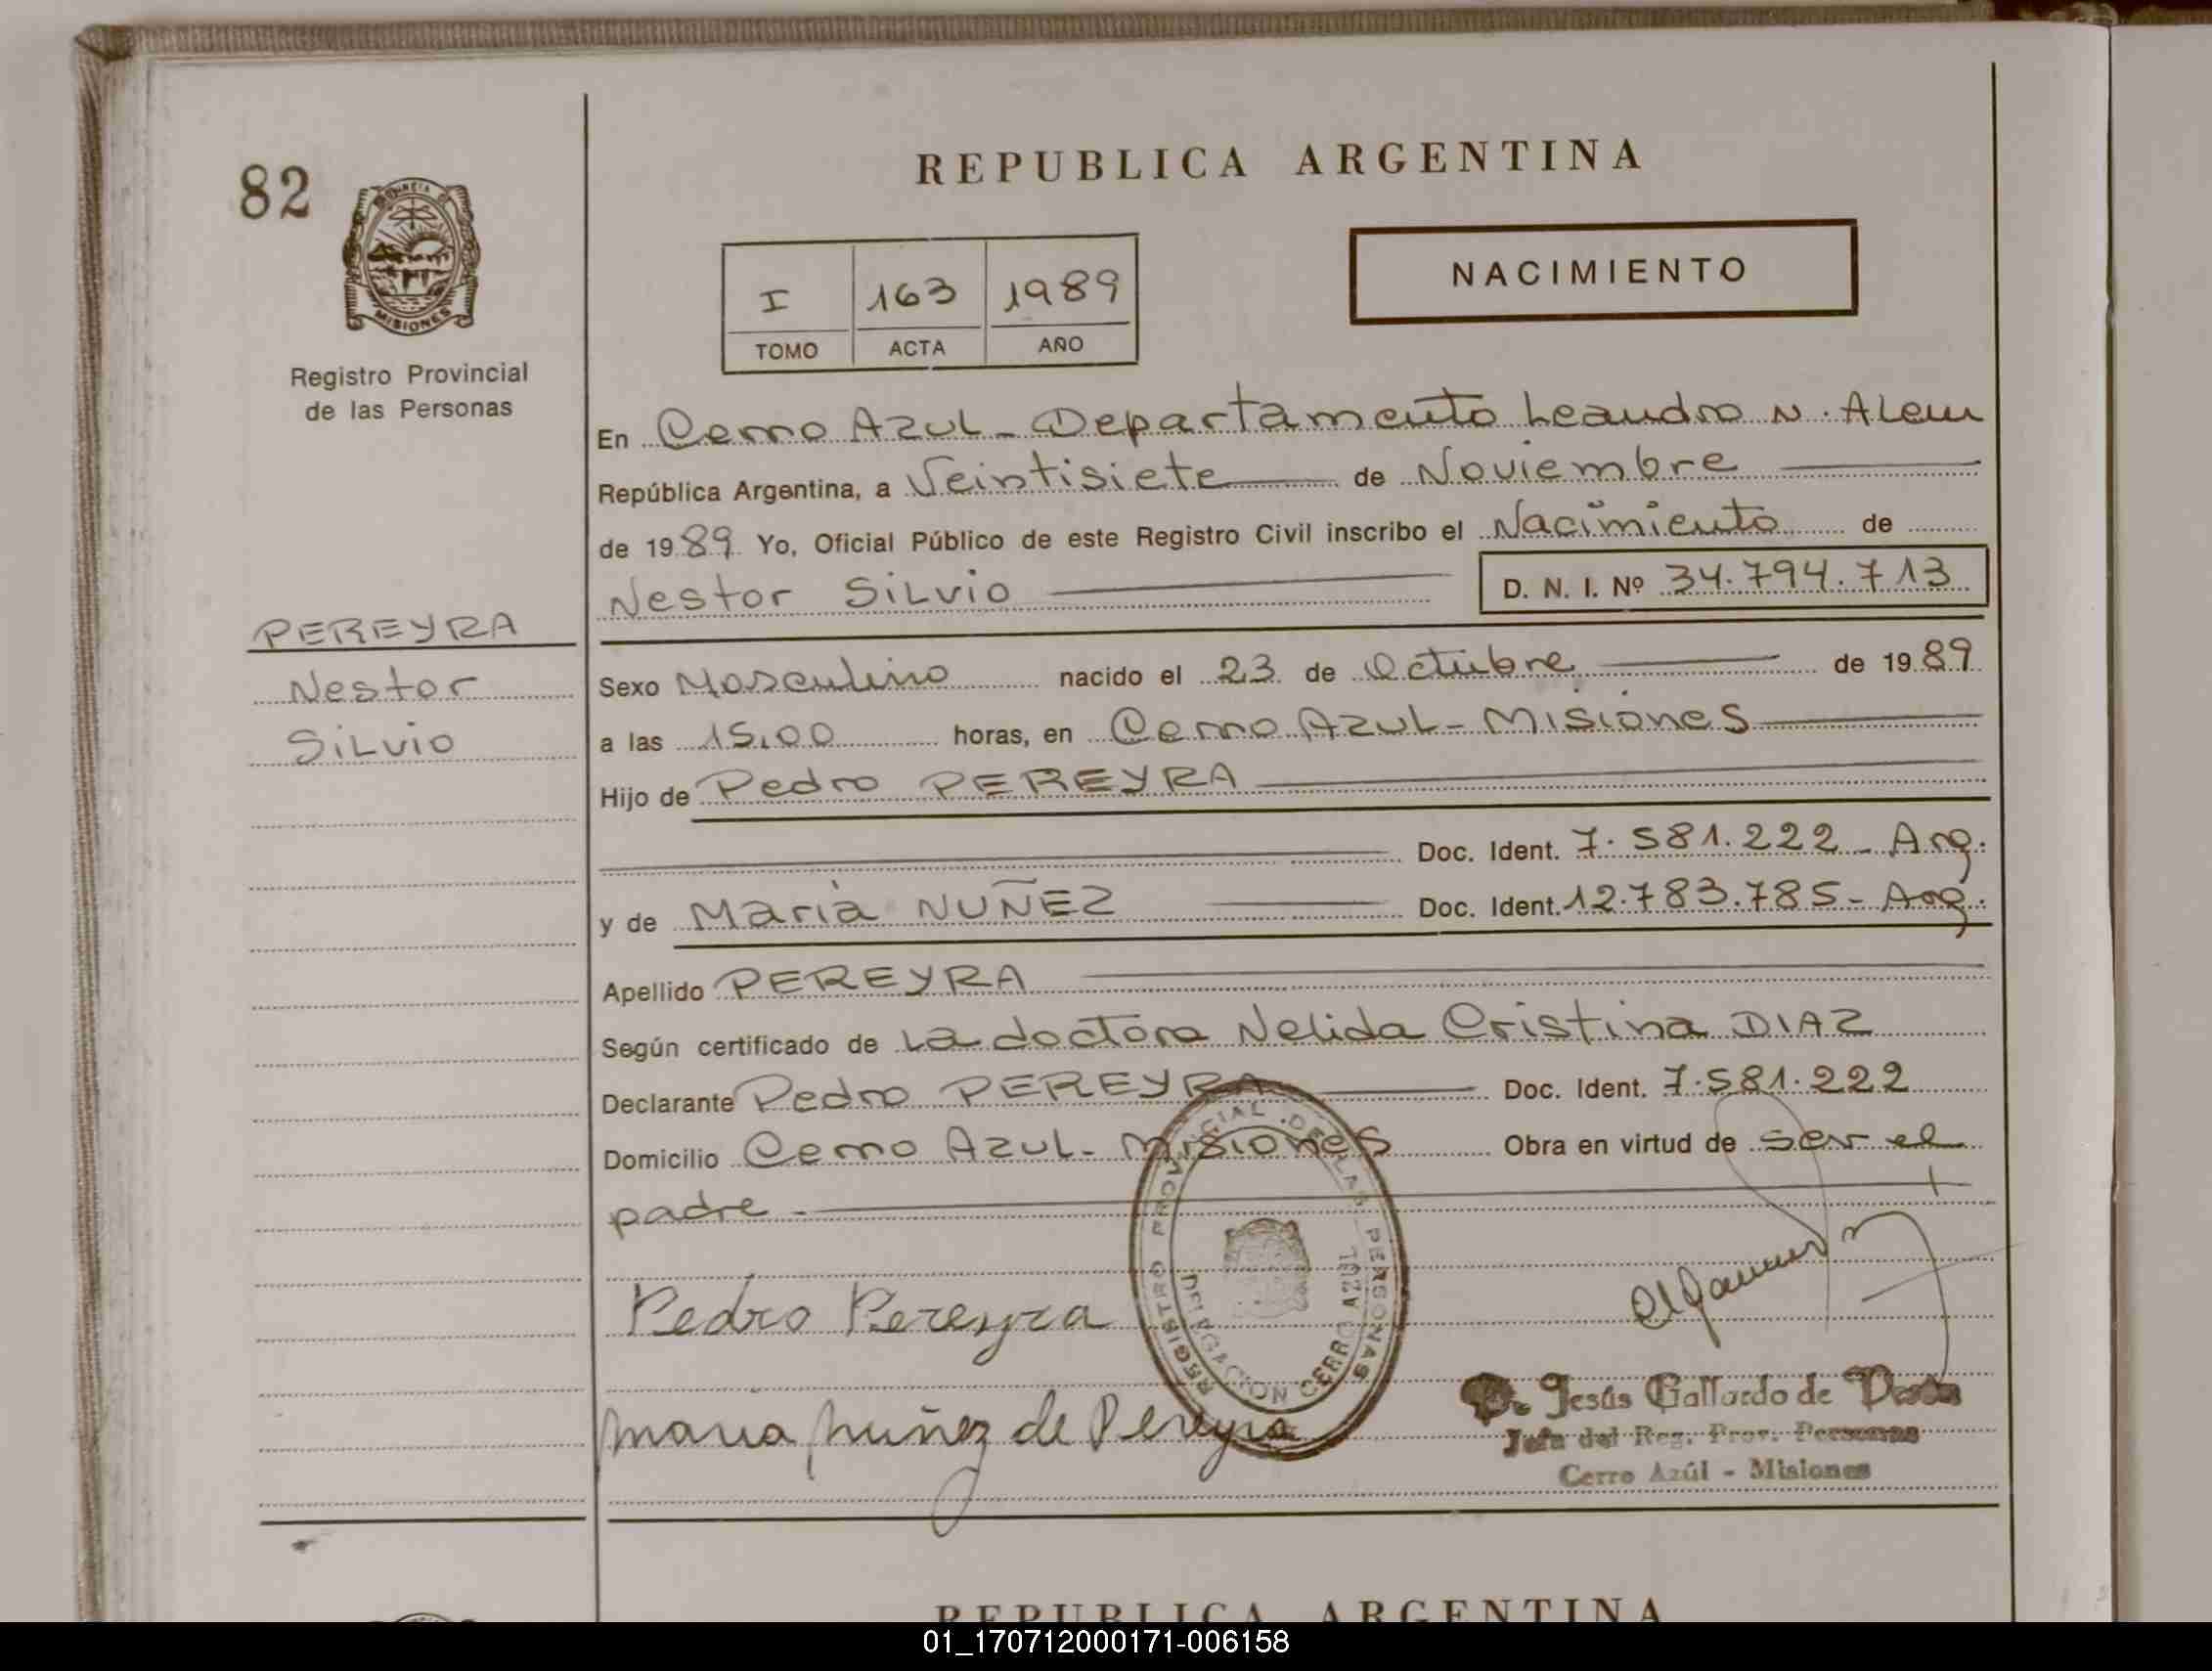 82
PROVINCIA
MISIONES
Registro Provincial
de las Personas
PEREYRA
Nestor
Silvio
REPUBLICA ARGENTINA
I 163 1989
TOMO ACTA AÑO
NACIMIENTO
En Cerro Azul - Departamento Leandro N. Alem
República Argentina, a Veintisiete de Noviembre
de 1989 Yo, Oficial Público de este Registro Civil inscribo el Nacimiento de
Nestor Silvio D. N. I. Nº 34.794.713
Sexo Masculino nacido el 23 de Octubre de 1989
a las 15,00 horas, en Cerro Azul - Misiones
Hijo de Pedro PEREYRA
Doc. Ident. 7.581.222 - Arg.
y de María NUÑEZ Doc. Ident. 12.783.785 - Arg.
Apellido PEREYRA
Según certificado de la doctora Nelida Cristina DIAZ
Declarante Pedro PEREYRA Doc. Ident. 7.581.222
Domicilio Cerro Azul - Misiones Obra en virtud de ser el
padre
Pedro Pereyra
Maria Nuñez de Pereyra
REGISTRO PROVINCIAL DE LAS PERSONAS
DELEGACION CERRO AZUL
Jesús Gallardo de
Jefa del Reg. Prov. Personas
Cerro Azúl - Misiones
REPUBLICA ARGENTINA
01_170712000171-006158